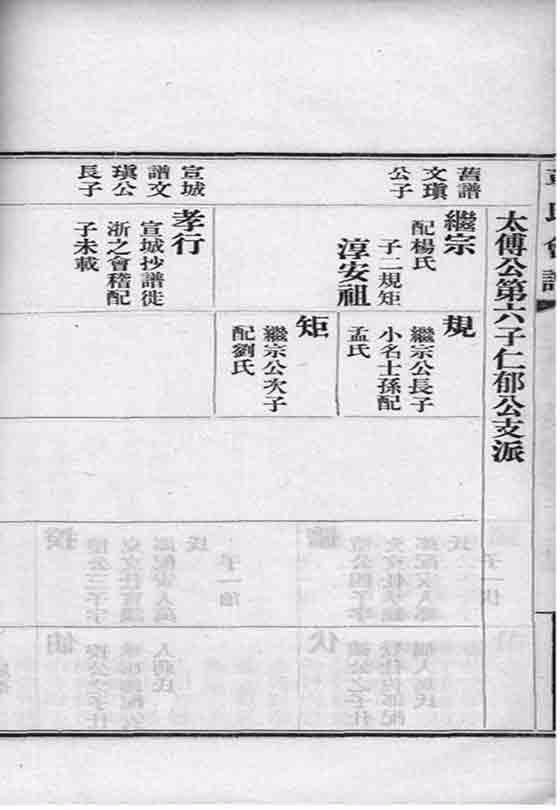 章氏會譜
太傅公第六子仁郁公支派
舊譜
文瑱
公子
繼宗
配楊氏
子二規矩
淳安祖
規
繼宗公長子
小名士孫配
孟氏
矩
繼宗公次子
配劉氏
宣城
譜文
瑱公
長子
孝行
宣城抄譜徙
浙之會稽配
子未載